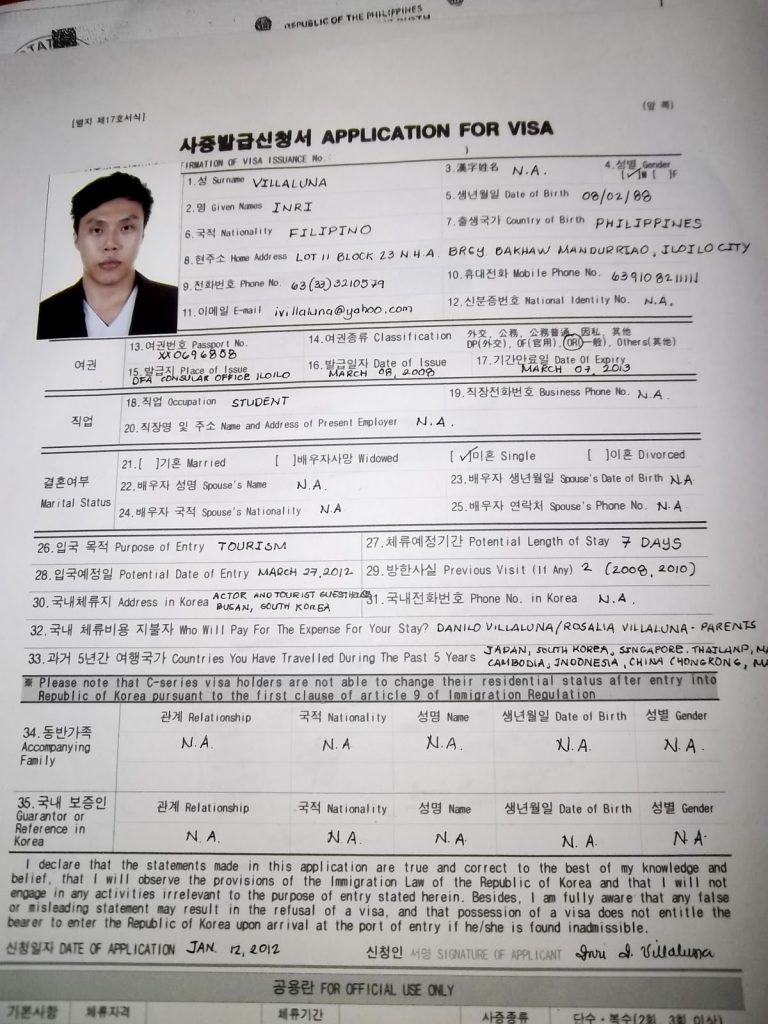 REPUBLIC OF THE PHILIPPINES
[별지 제17호서식]
(앞 쪽)
사증발급신청서 APPLICATION FOR VISA
FIRMATION OF VISA ISSUANCE No.: )
1.성 Surname VILLALUNA 3.漢字姓名 N.A. 4.성별 Gender [✓]M [ ]F
2.명 Given Names INRI 5.생년월일 Date of Birth 08/02/88
6.국적 Nationality FILIPINO 7.출생국가 Country of Birth PHILIPPINES
8.현주소 Home Address LOT 11 BLOCK 23 N.H.A. BRGY. BAKHAW MANDURRIAO, ILOILO CITY
9.전화번호 Phone No. 63(33)3210579 10.휴대전화 Mobile Phone No. 639108211111
11.이메일 E-mail ivillaluna@yahoo.com 12.신분증번호 National Identity No. N.A.
여권
13.여권번호 Passport No. XX0696858 14.여권종류 Classification 外交, 公務, 公務普通, 因私, 其他
DP(外交), OF(官用), OR(一般), Others(其他)
15.발급지 Place of Issue DFA CONSULAR OFFICE ILOILO 16.발급일자 Date of Issue MARCH 08, 2008 17.기간만료일 Date Of Expiry MARCH 07, 2013
직업
18.직업 Occupation STUDENT 19.직장전화번호 Business Phone No. N.A.
20.직장명 및 주소 Name and Address of Present Employer N.A.
결혼여부 Marital Status
21.[ ]기혼 Married [ ]배우자사망 Widowed [✓]미혼 Single [ ]이혼 Divorced
22.배우자 성명 Spouse's Name N.A. 23.배우자 생년월일 Spouse's Date of Birth N.A
24.배우자 국적 Spouse's Nationality N.A 25.배우자 연락처 Spouse's Phone No. N.A.
26.입국 목적 Purpose of Entry TOURISM 27.체류예정기간 Potential Length of Stay 7 DAYS
28.입국예정일 Potential Date of Entry MARCH 27, 2012 29.방한사실 Previous Visit (If Any) 2 (2008, 2010)
30.국내체류지 Address in Korea ACTOR AND TOURIST GUESTHOUSE BUSAN, SOUTH KOREA 31.국내전화번호 Phone No. in Korea N.A.
32.국내 체류비용 지불자 Who Will Pay For The Expense For Your Stay? DANILO VILLALUNA/ROSALIA VILLALUNA - PARENTS
33.과거 5년간 여행국가 Countries You Have Travelled During The Past 5 Years JAPAN, SOUTH KOREA, SINGAPORE, THAILAND,
CAMBODIA, INDONESIA, CHINA
※ Please note that C-series visa holders are not able to change their residential status after entry into
Republic of Korea pursuant to the first clause of article 9 of Immigration Regulation
34.동반가족 Accompanying Family
관계 Relationship 국적 Nationality 성명 Name 생년월일 Date of Birth 성별 Gender
N.A. N.A N.A. N.A. N.A.
35.국내 보증인 Guarantor or Reference in Korea
관계 Relationship 국적 Nationality 성명 Name 생년월일 Date of Birth 성별 Gender
N.A. N.A. N.A. N.A. N.A.
I declare that the statements made in this application are true and correct to the best of my knowledge and
belief, that I will observe the provisions of the Immigration Law of the Republic of Korea and that I will not
engage in any activities irrelevant to the purpose of entry stated herein. Besides, I am fully aware that any false
or misleading statement may result in the refusal of a visa, and that possession of a visa does not entitle the
bearer to enter the Republic of Korea upon arrival at the port of entry if he/she is found inadmissible.
신청일자 DATE OF APPLICATION JAN. 12, 2012 신청인 서명 SIGNATURE OF APPLICANT Inri I. Villaluna
공용란 FOR OFFICIAL USE ONLY
기본사항 체류자격 체류기간 사증종류 단수·복수(2회, 3회 이상)